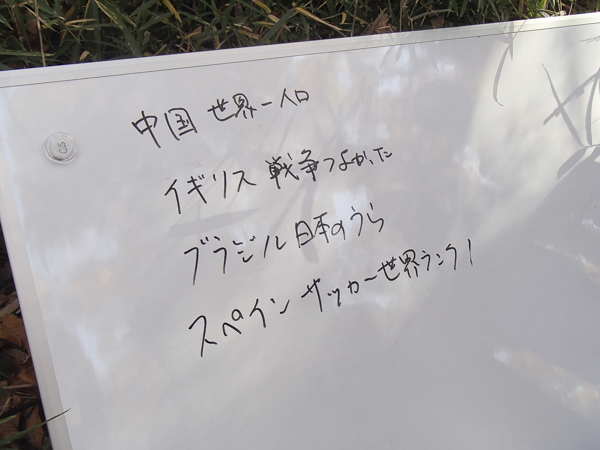 中国 世界一人口
イギリス 戦争つよかった
ブラジル 日本のうら
スペイン サッカー世界ランク1